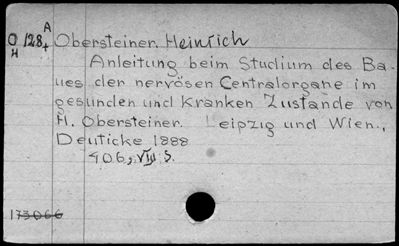 A
O 128+ Obersteiner. Heinrich
H
Anleitung beim Studium des Ba-
ues der nervösen Centralorgane im
gesunden und kranken Zustande von
H. Obersteiner. Leipzig und Wien.,
Deuticke 1888
406, VIII S.
173066